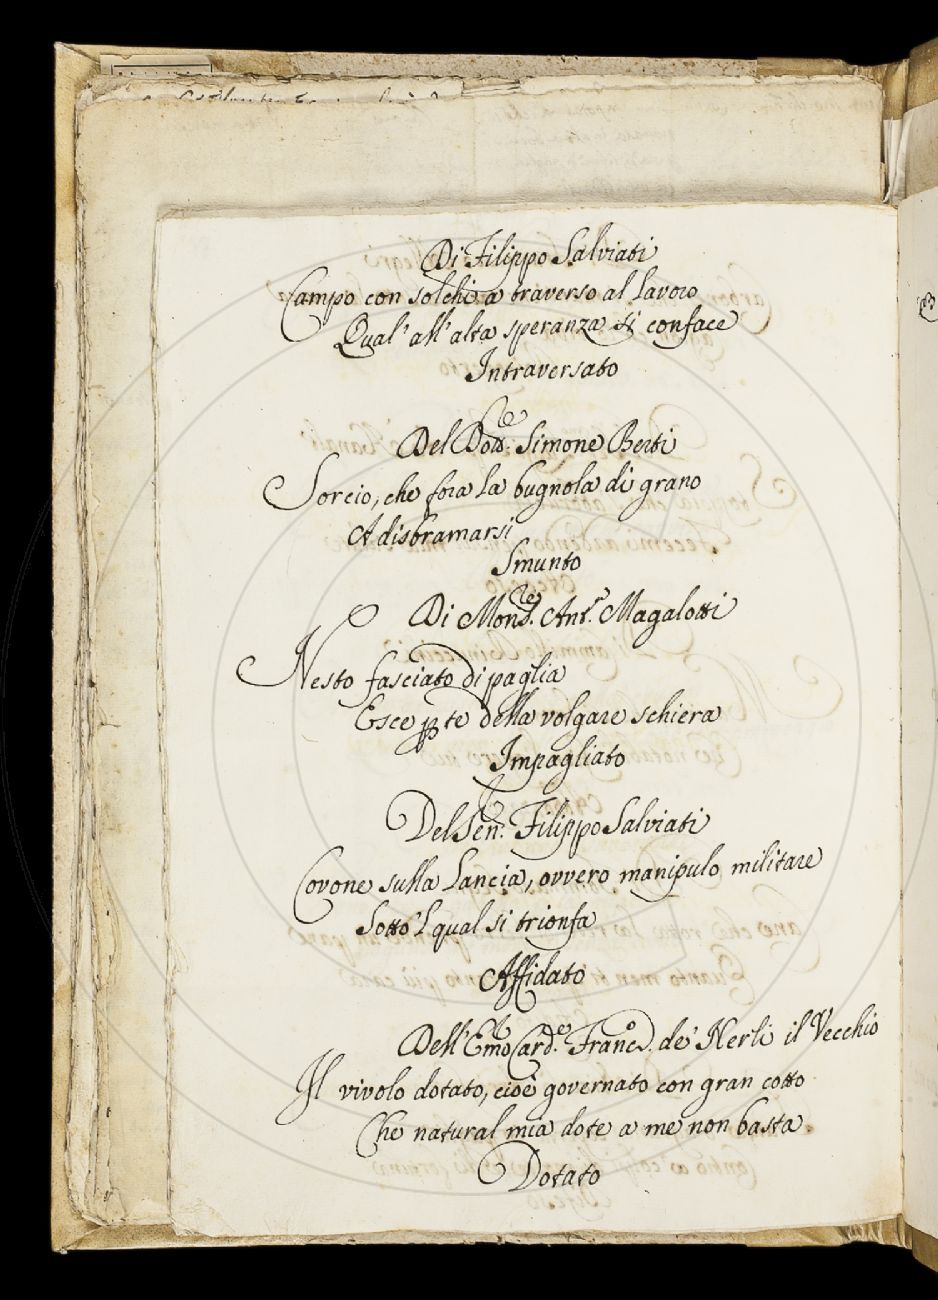 Di Filippo Salviati
Campo con solchi a traverso al Lavoro
Qual' all' alta speranza si conface
Intraversato
Del Dott.re Simone Berti
Sorcio, che fora La bugnola di grano
A disbramarsi
Smunto
Di Mons.re Ant.o Magalotti
Nesto fasciato di paglia
Esce p te della volgare schiera
Impagliato
Del Sen.e Filippo Salviati
Covone sulla Lancia, ovvero manipulo militare
Sotto 'l qual si trionfa
Affidato
Dell' Emo Card.e Franc.o de' Nerli il Vecchio
Il vivolo dotato, cioè governato con gran cotto
Che natural mia dote a me non basta.
Dotato